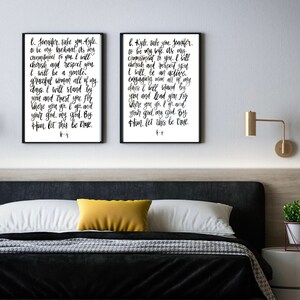 I, Jennifer, take you, Kyle,
to be my husband. It's my
commitment to you. I will
cherish and respect you.
I will be a gentle,
graceful woman all of my
days. I will stand by
you and trust you. For
where you go, I go and
your god, my God. By
Him, let this be done.
I, Kyle, take you, Jennifer,
to be my wife. It's my
commitment to you. I will
cherish and respect you.
I will be an
man all of my
days. I will stand by
you and lead you. For
where you go, I go and
your god, my God. By
Him, let this be done.